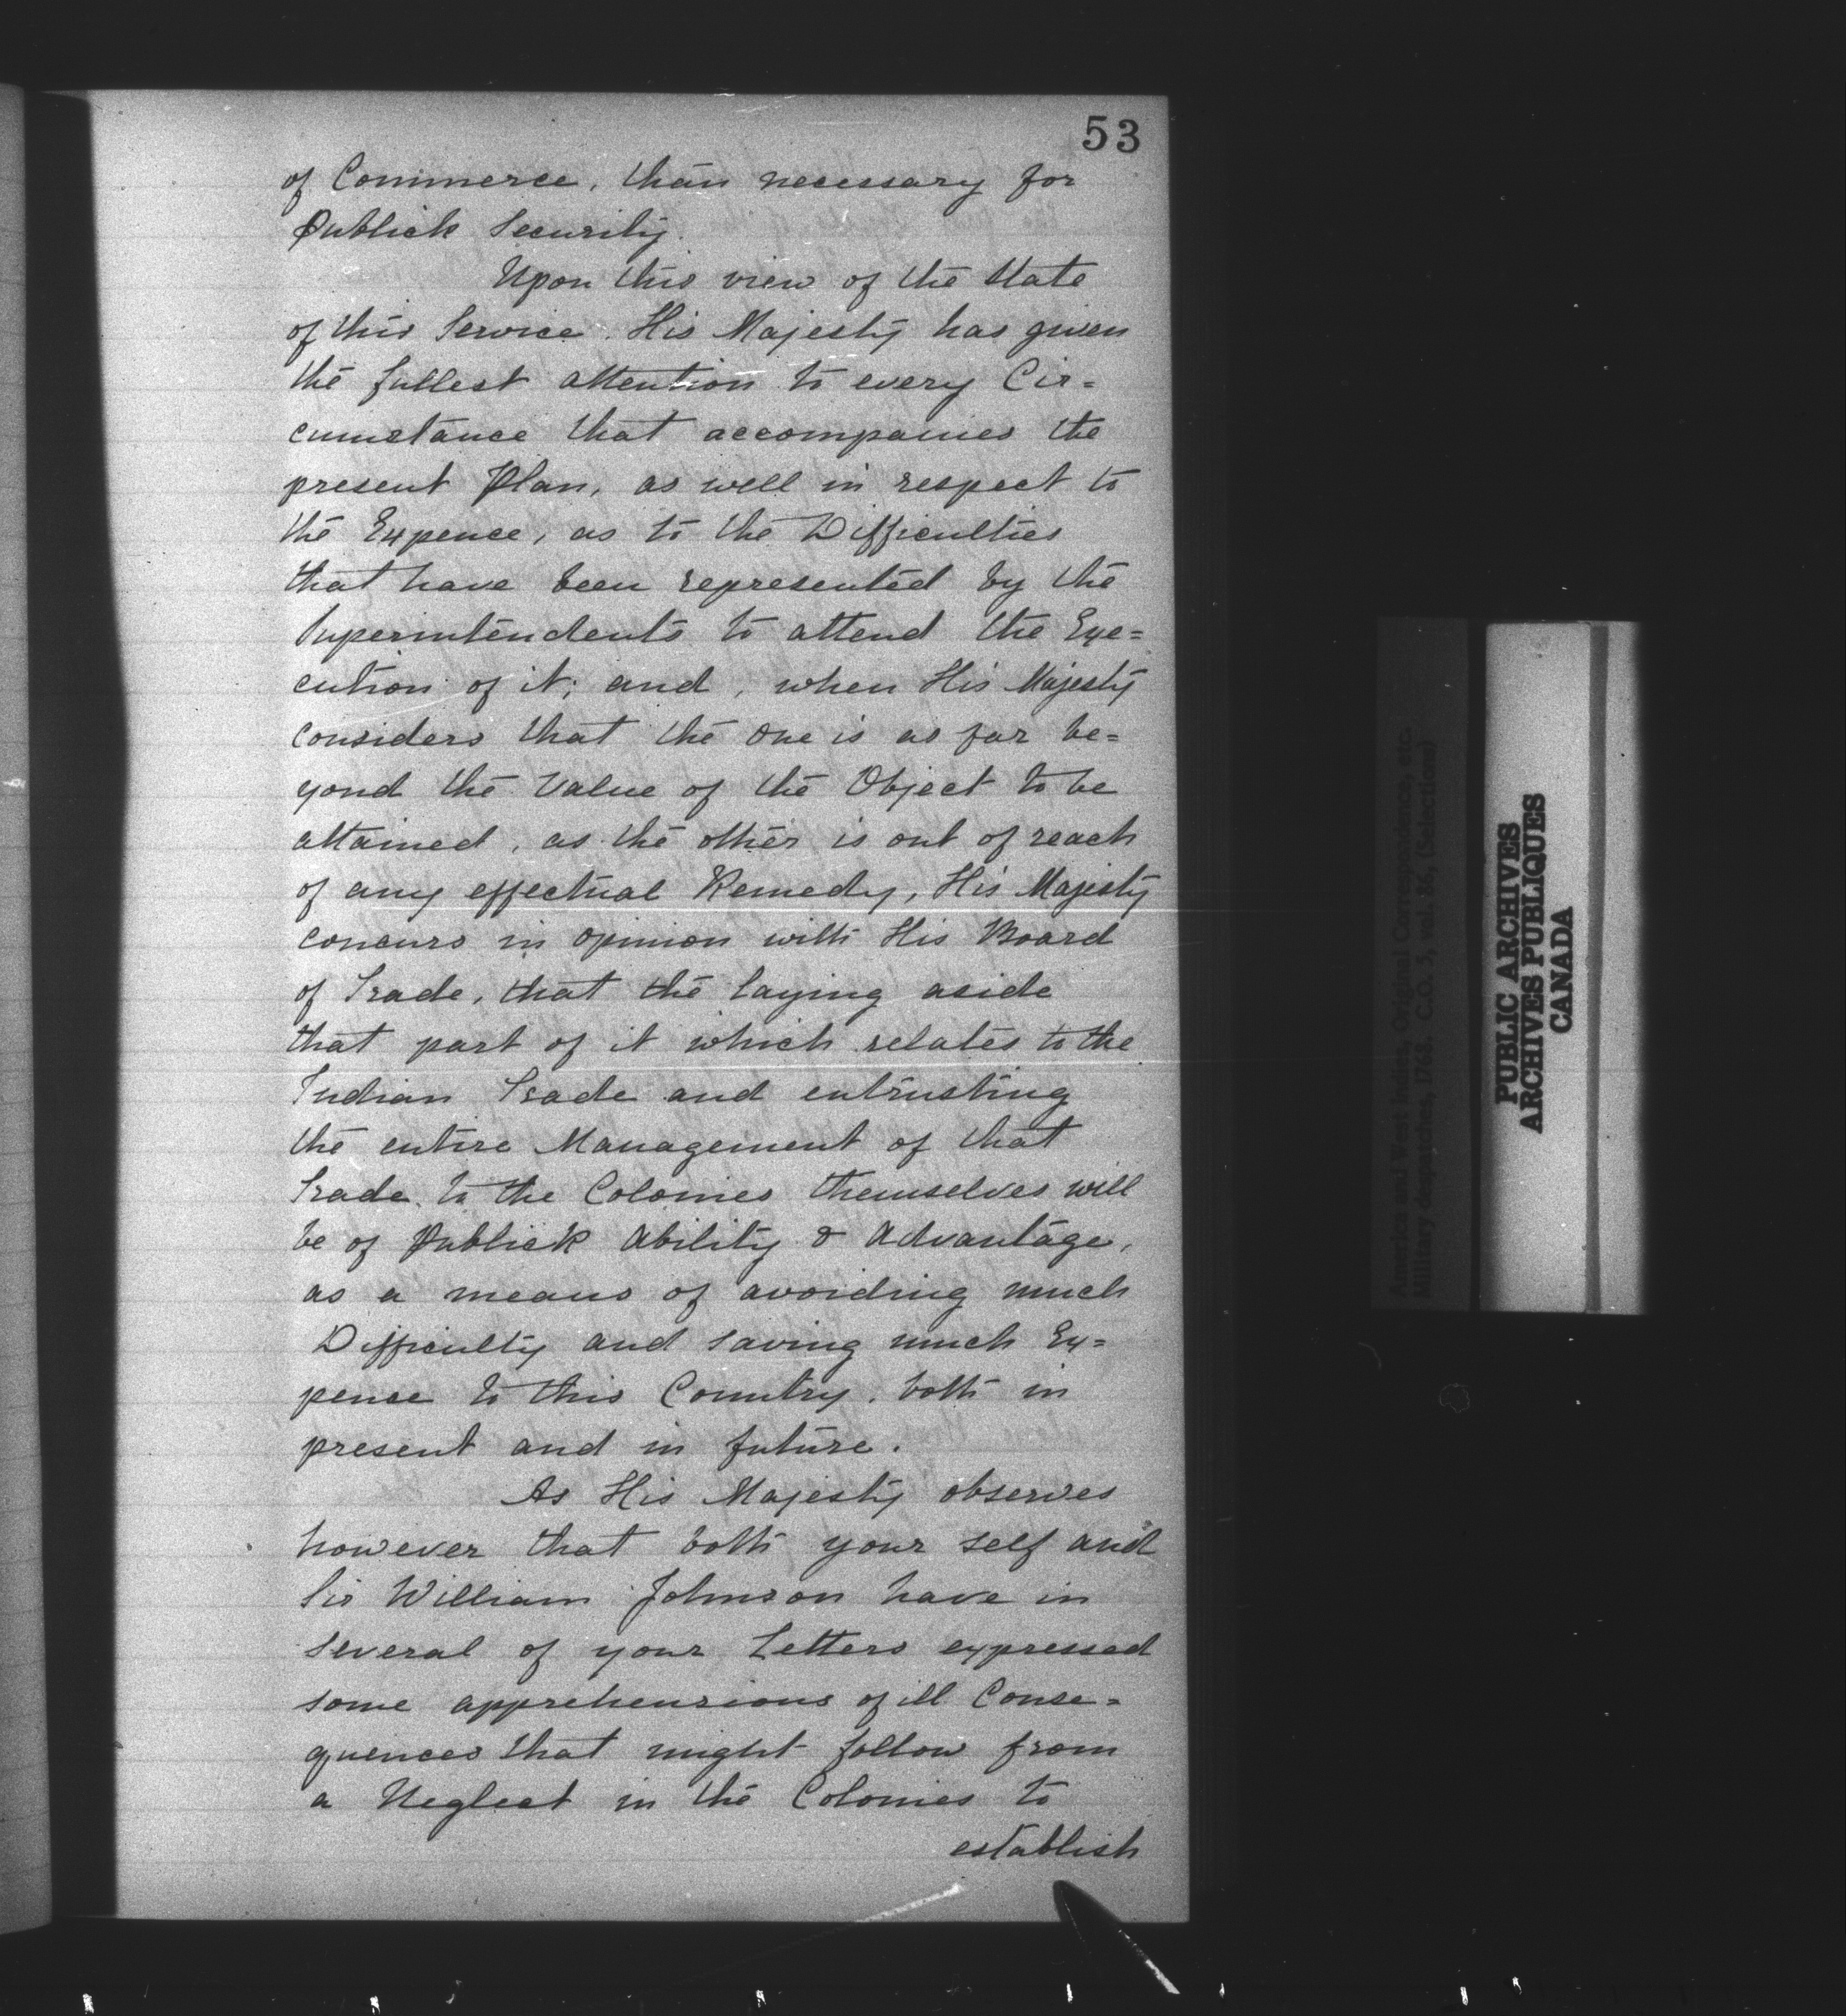 53
of Commerce, than necessary for
Publick Security.
Upon this view of the State
of this Service. His Majesty has given
the fullest attention to every Cir=
cumstance that accompanies the
present Plan, as well in respect to
the Expence, as to the Difficulties
that have been represented by the
Superintendents to attend the Exe=
cution of it; and, when His Majesty
considers that the one is as far be=
yond the Value of the Object to be
attained, as the other is out of reach
of any effectual Remedy, His Majesty
concurs in opinion with His Board
of Trade, that the laying aside
that part of it which relates to the
Indian Trade and entrusting
the entire Management of that
Trade to the Colonies themselves will
be of Publick ability & Advantage,
as a means of avoiding much
Difficulty and saving much Ex=
pence to this Country, both in
present and in future.
As His Majesty observes
however that both your self and
Sir William Johnson have in
several of your Letters expressed
some apprehensions of ill Conse=
quences that might follow from
a Neglect in the Colonies to
establish
America and West Indies, Original Correspondence, etc.
Military despatches, 1768. C.O. 5, vol. 86, (Selections)
PUBLIC ARCHIVES
ARCHIVES PUBLIQUES
CANADA